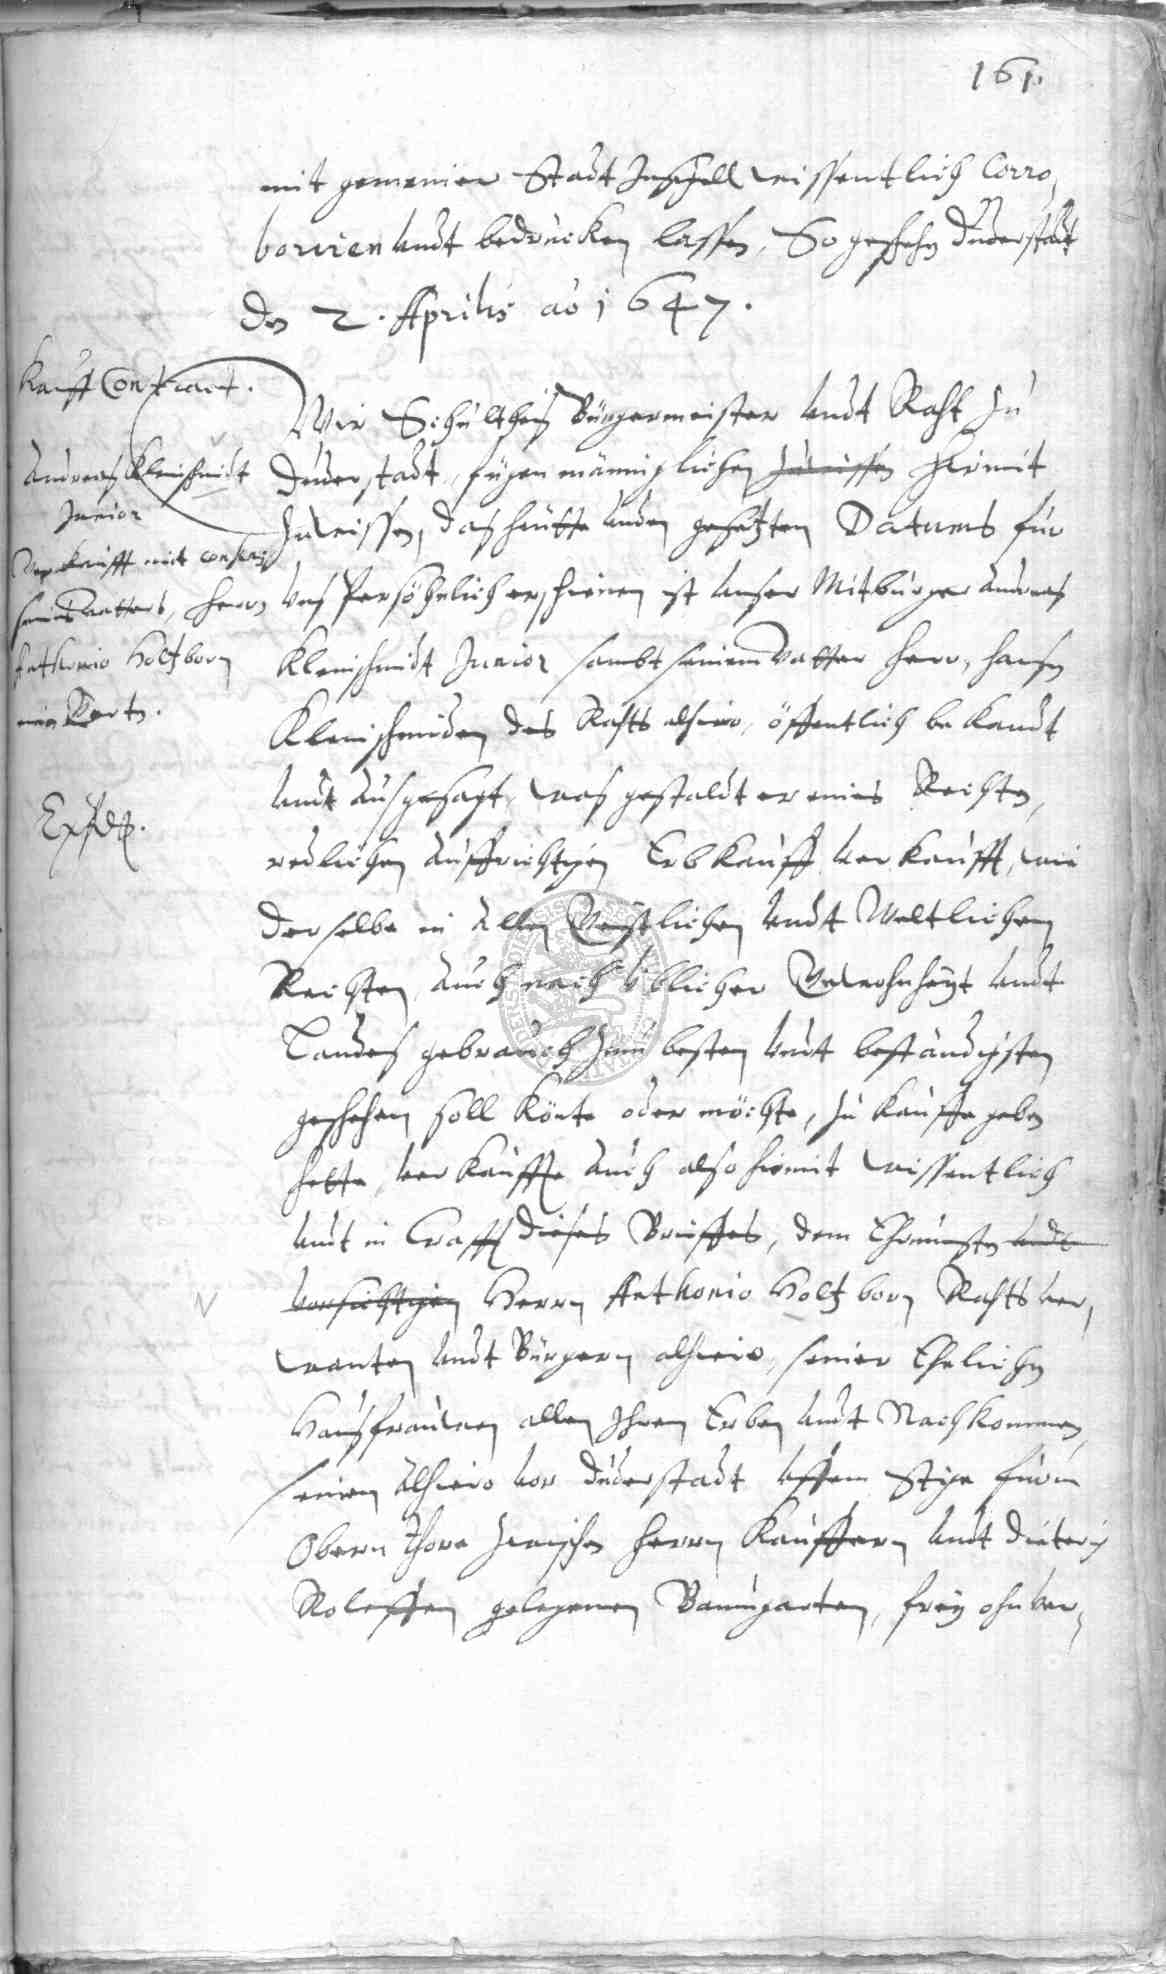 161.
mit gemeiner Stadt Insigell wissentlich Corro,
boriren undt bedrucken lassen, So geschehn Duderstadt
den 2. Aprilis ao 1647.
Kauff Contract.
Andreas Kleinschmidt
Junior
Verkaufft mit consens
seines Vatters, Herrn
Anthonio Holtzborn
einen Garten.
Wir Schultheis Bürgermeister undt Raht zu
Duderstadt, fügen männiglichen zu wissen hiemit
zu wissen, das heutte unden gesetzten Datums für
uns Persöhnlich erschienen ist unser Mitbürger Andreas
Kleinschmidt Junior sambt seinem Vatter Herr, Hansen
Kleinschmiden des Rahts alhier, öffentlich bekandt
undt ausgesagt, was gestaldt er eines Rechten,
redlichen auffrichtigen Erbkauff verkaufft, wie
derselbe in allen Geistlichen undt Weltlichen
Rechten, auch nach üblicher Gewohnheyt undt
Landes gebrauch zum besten undt beständigsten
geschehen soll könte oder möchte, zu kauffe geben
hette, verkauffe auch also hiemit wissentlich
undt in Crafft dieses Brieffes, dem Ehrnvesten undt
vorsichtigen Herrn Anthonio Holtzborn Rahts ver,
wanten undt Bürgern alhiero, seiner Ehelichen
Hausfrauwen allen Ihren Erben undt Nachkommen,
seinen alhiero vor Duderstadt uffem Stige fürm
Obern thore zwischen Herrn Kauffern undt Dieterich
Roleffen gelegenen Baumgarten, frey ohnver,